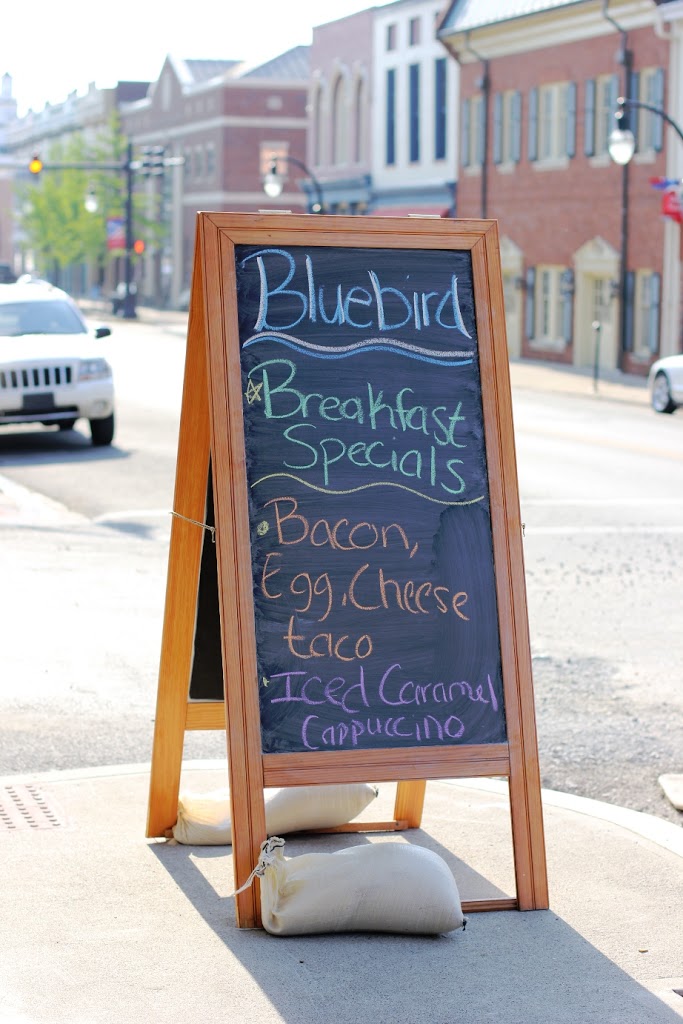 Bluebird
Breakfast
Specials
Bacon,
Egg, Cheese
taco
Iced Caramel
Cappuccino